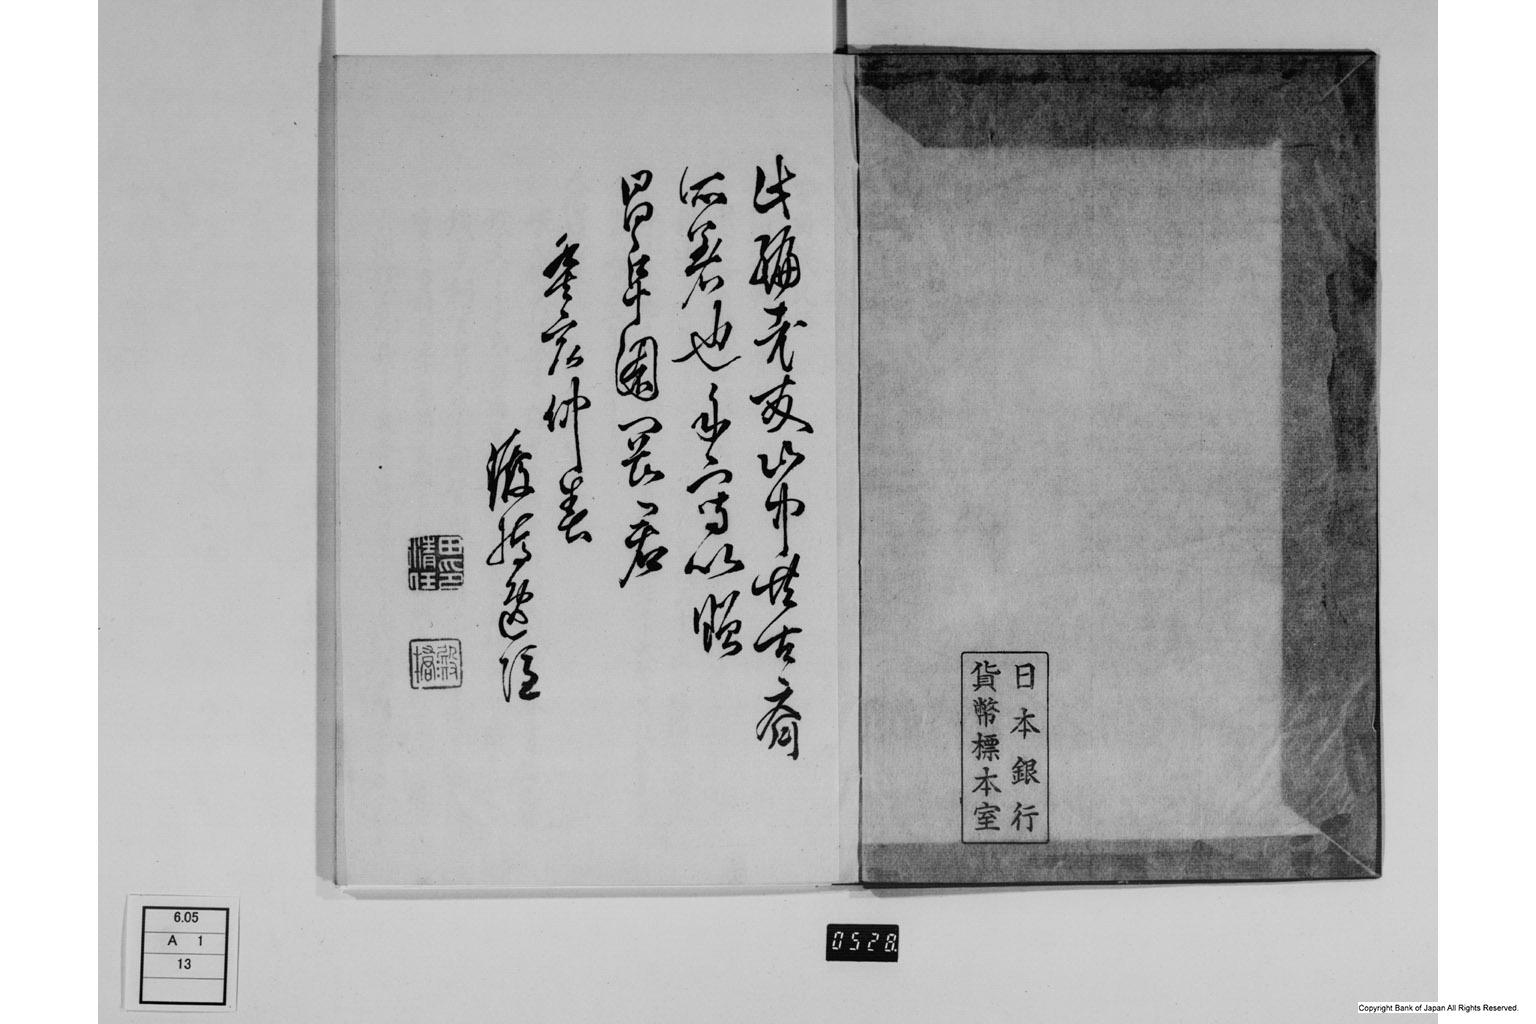 日本銀行
貨幣標本室
此編老友山中共古斎
所著也手寫以贈
昌阜園岡君
癸亥仲春
清任
6.05
A 1
13
0528.
Copyright Bank of Japan All Rights Reserved.